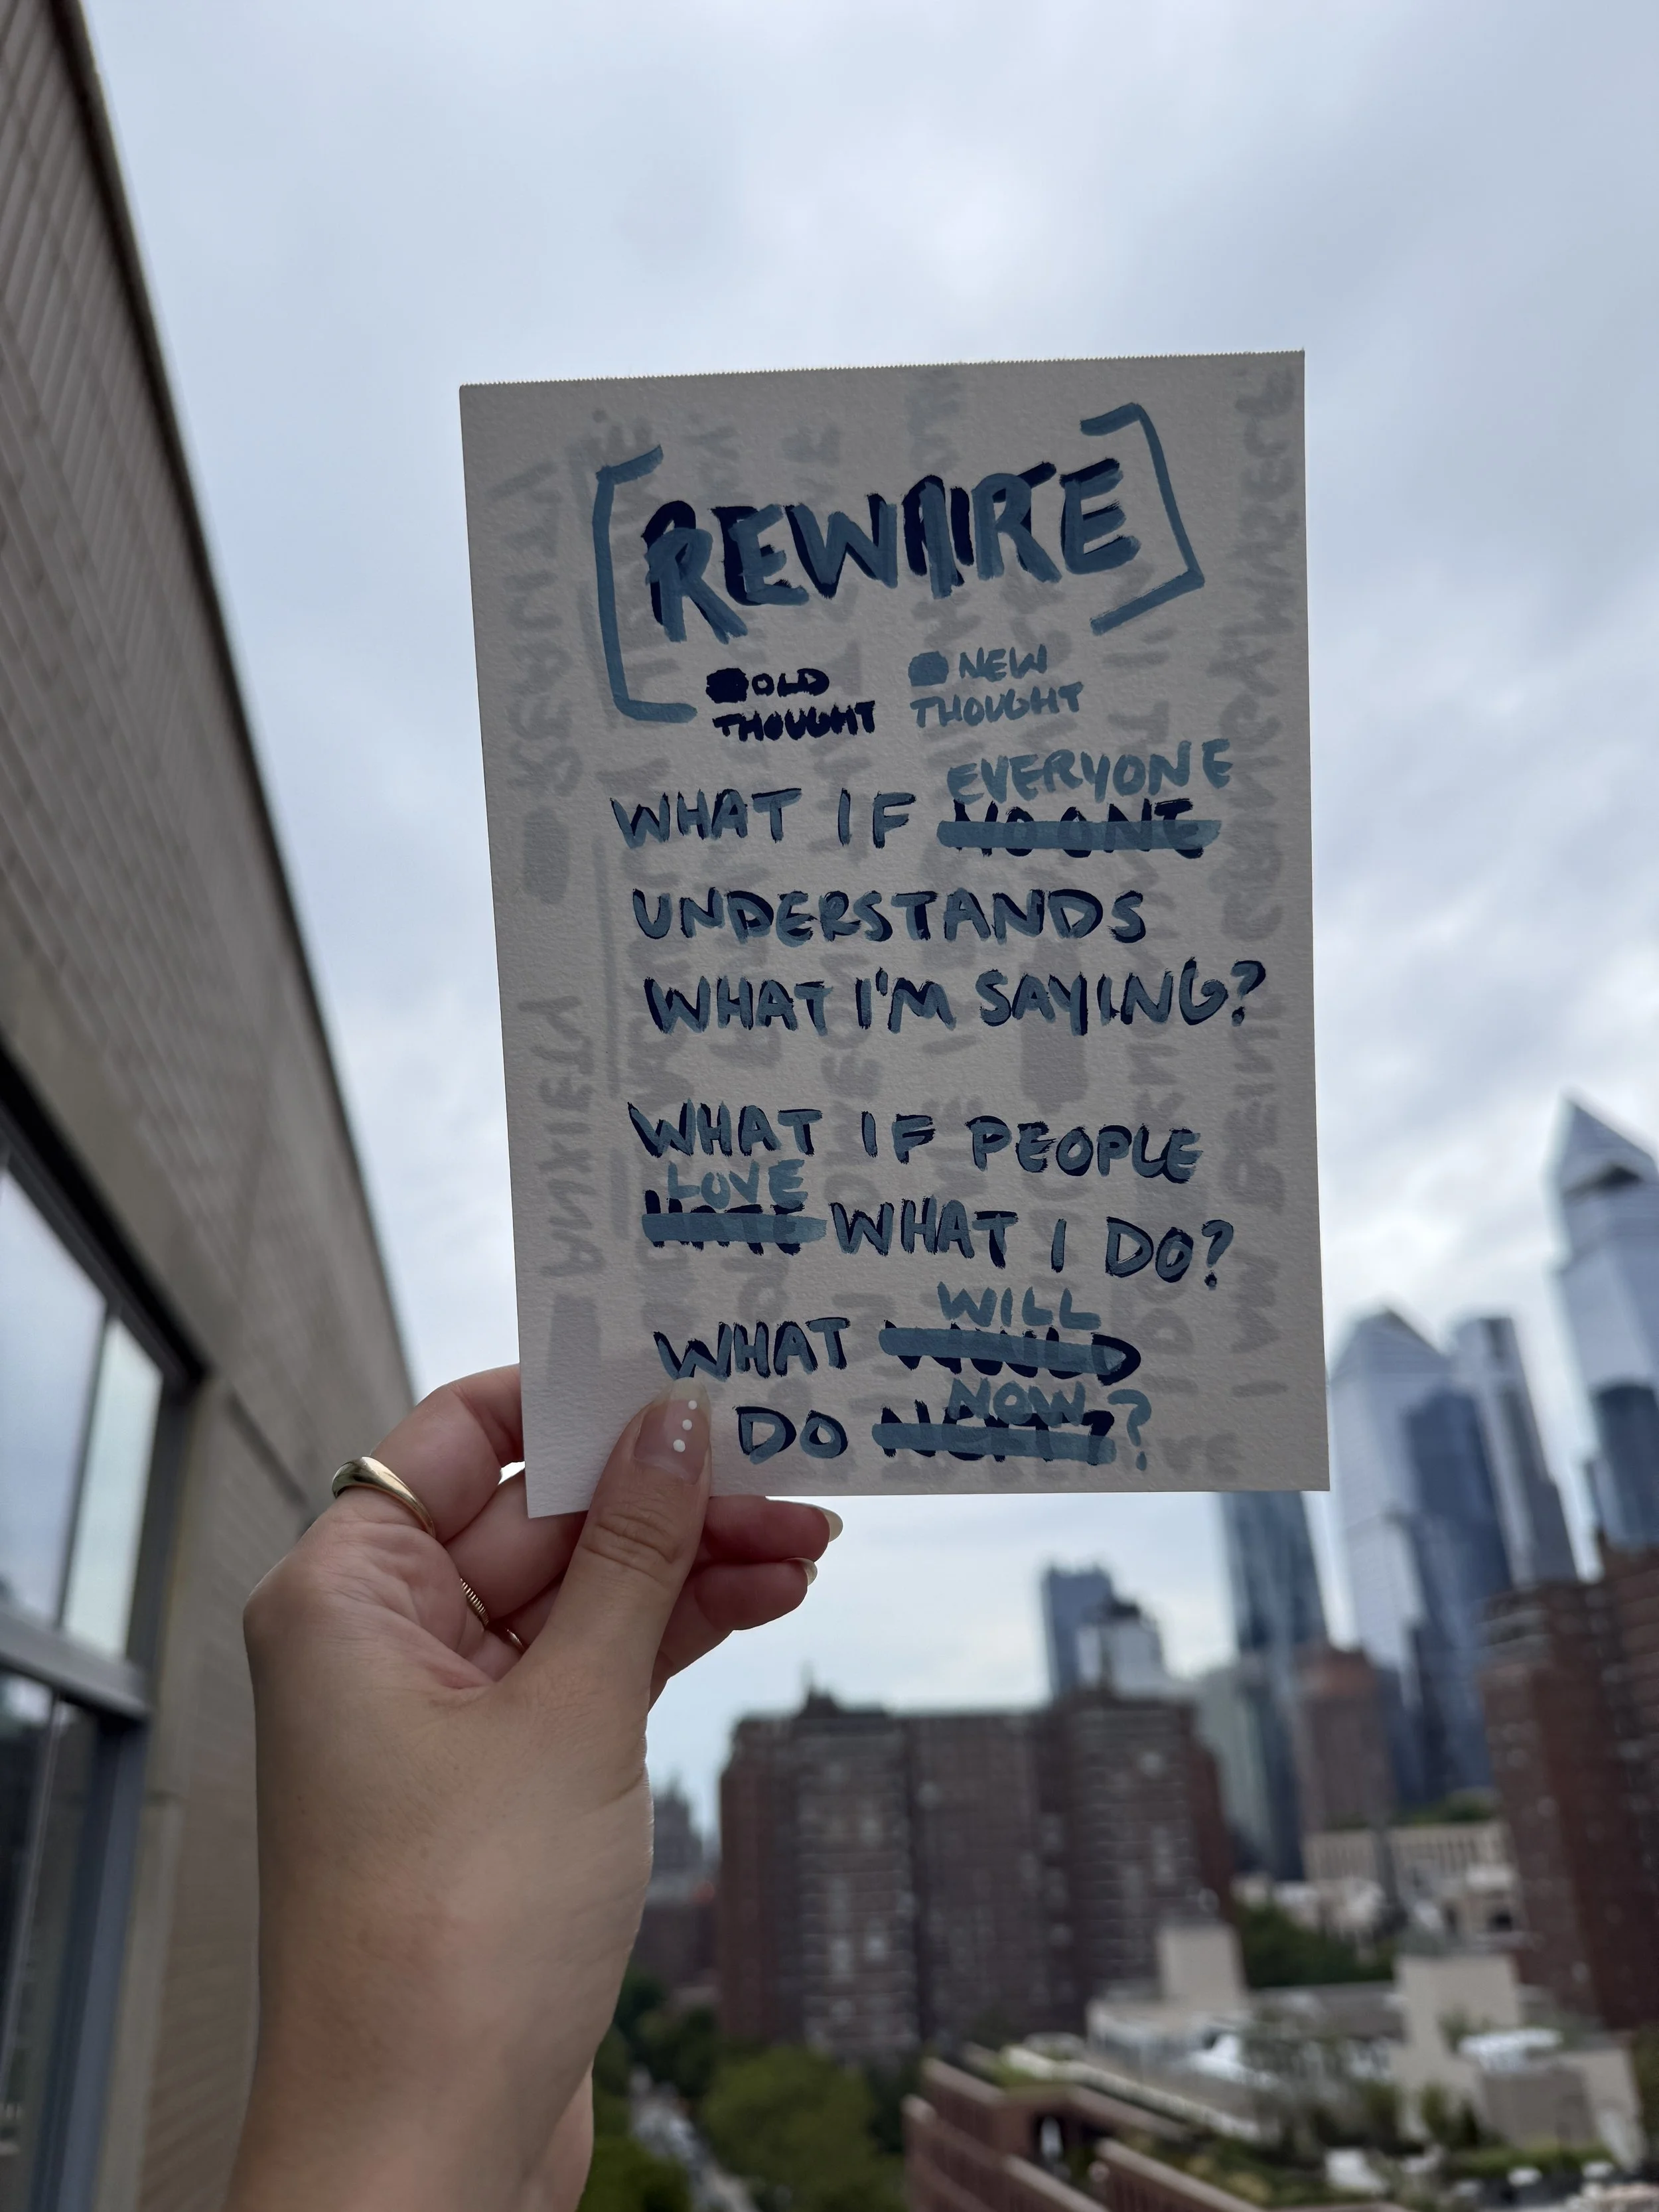 [REWIRE]
OLD THOUGHT
NEW THOUGHT
EVERYONE
WHAT IF NO ONE
UNDERSTANDS
WHAT I'M SAYING?
WHAT IF PEOPLE
LOVE
HATE WHAT I DO?
WILL
WHAT WOULD
NOW?
DO